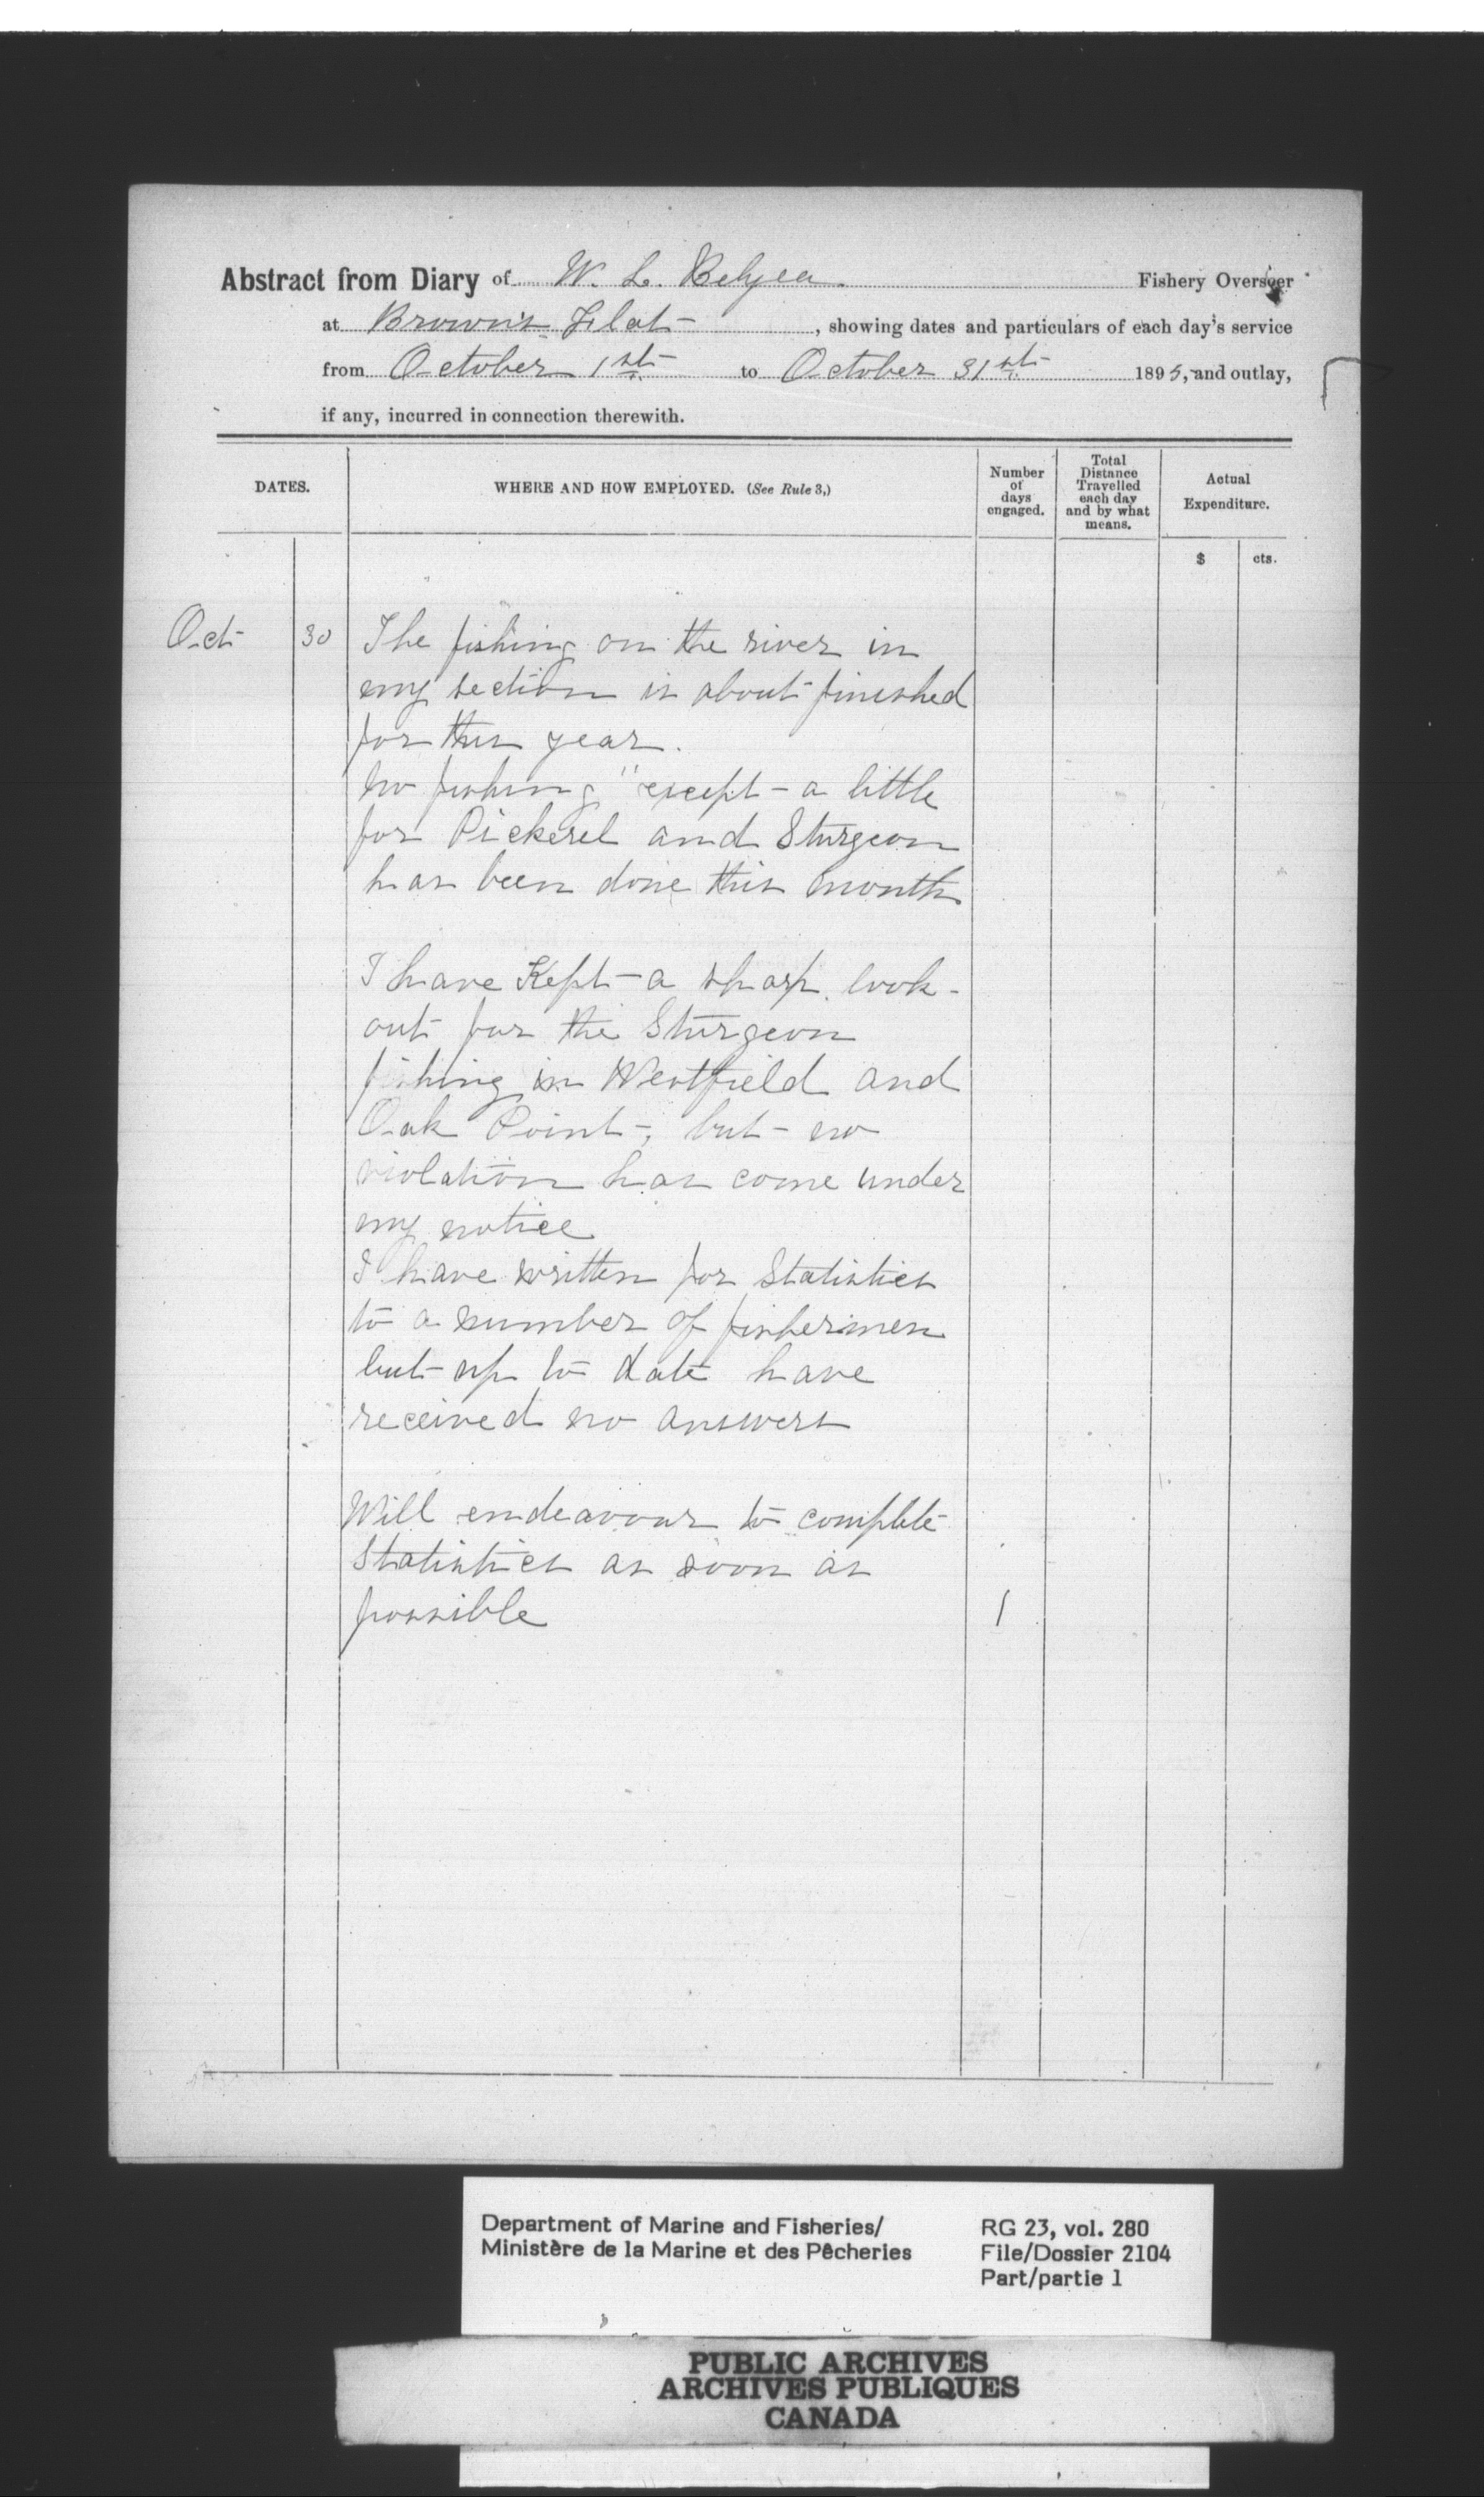 Abstract from Diary of W. L. Belyea Fishery Overseer
at Brown's Flat, showing dates and particulars of each day's service
from October 1st to October 31st 1895, and outlay,
if any, incurred in connection therewith.
DATES.
WHERE AND HOW EMPLOYED. (See Rule 3,)
Number
of
days
engaged.
Total
Distance
Travelled
each day
and by what
means.
Actual
Expenditure.
$ cts.
Oct 30 The fishing on the river in
my section is about finished
for this year.
No fishing "except a little
for Pickerel and Sturgeon
has been done this month
I have Kept a sharp look-
out for the Sturgeon
fishing in Westfield and
Oak Point, but no
violation has come under
my notice
I have written for Statistics
to a number of fishermen
but up to date have
received no answers
Will endeavour to complete
Statistics as soon as
possible 1
Department of Marine and Fisheries/
Ministère de la Marine et des Pêcheries
RG 23, vol. 280
File/Dossier 2104
Part/partie 1
PUBLIC ARCHIVES
ARCHIVES PUBLIQUES
CANADA